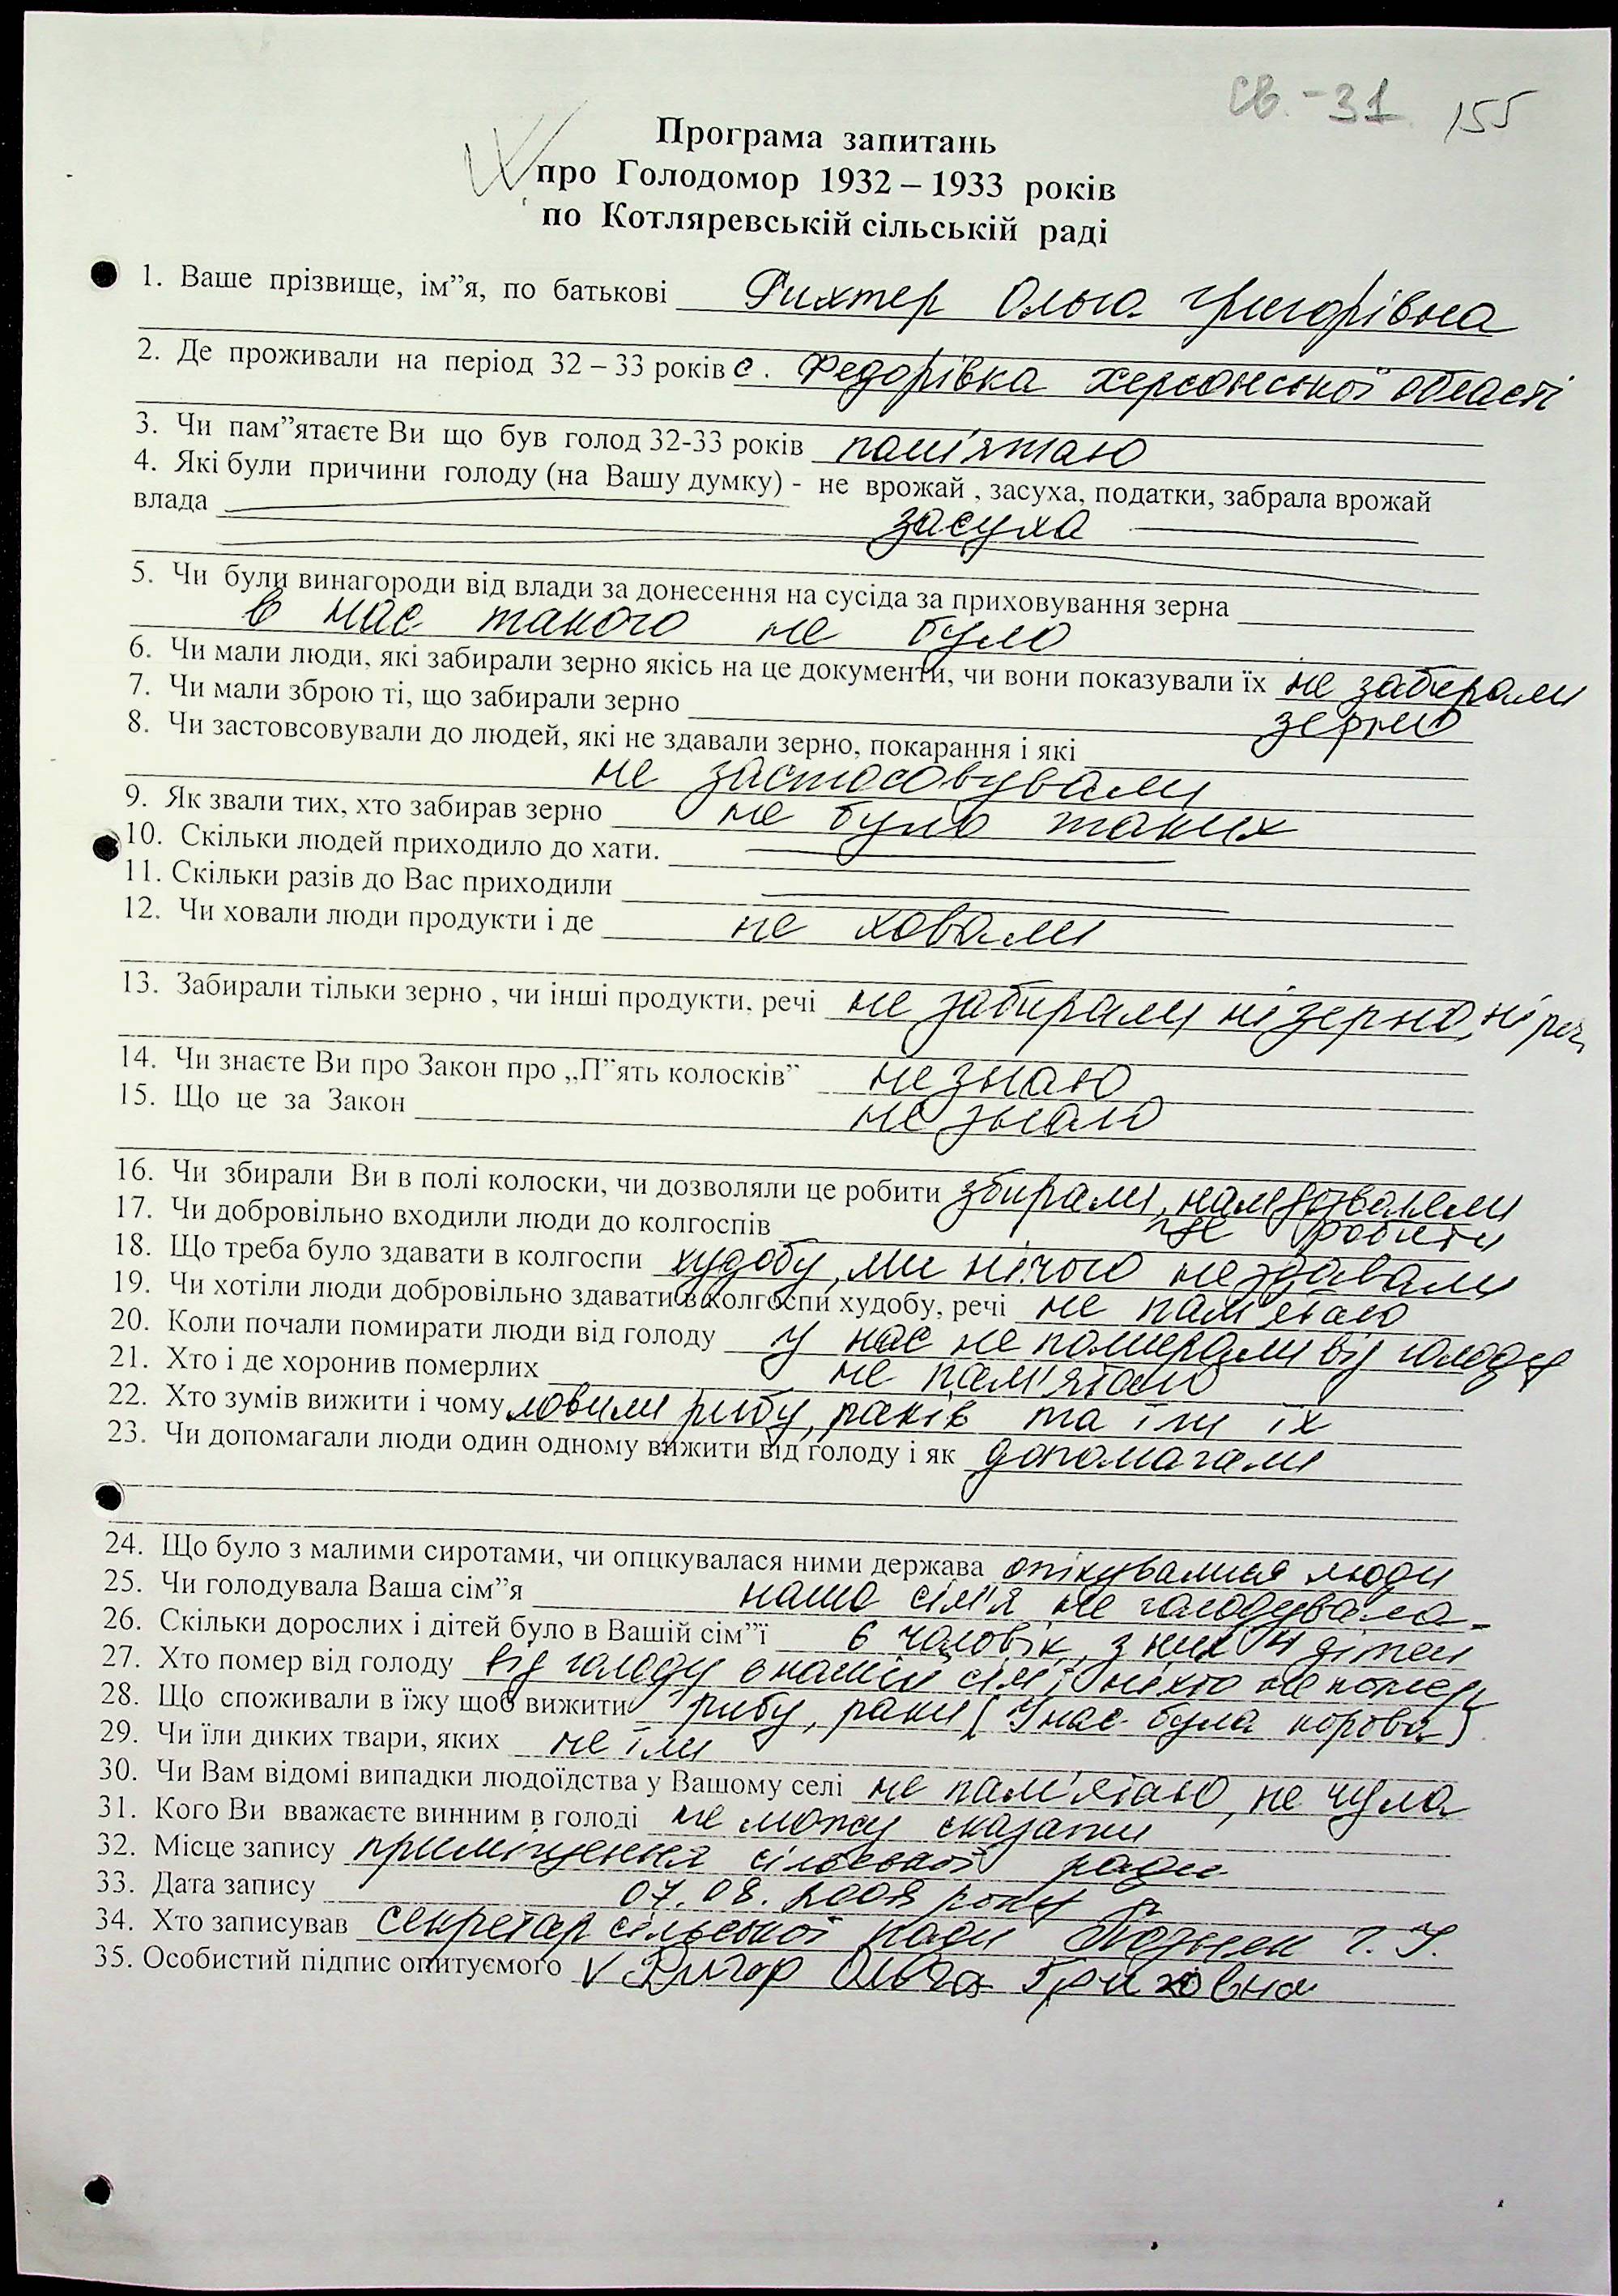 св. - 31 155
Програма запитань
про Голодомор 1932 – 1933 років
по Котляревській сільській раді
1. Ваше прізвище, ім”я, по батькові Рихтер Ольга Григорівна
2. Де проживали на період 32 – 33 років с. Федорівка Херсонської області
3. Чи пам”ятаєте Ви що був голод 32-33 років пам'ятаю
4. Які були причини голоду (на Вашу думку) - не врожай , засуха, податки, забрала врожай
влада засуха
5. Чи були винагороди від влади за донесення на сусіда за приховування зерна
в нас такого не було
6. Чи мали люди, які забирали зерно якісь на це документи, чи вони показували їх не забирали
7. Чи мали зброю ті, що забирали зерно зерно
8. Чи застовсовували до людей, які не здавали зерно, покарання і які
не застосовували
9. Як звали тих, хто забирав зерно не було таких
10. Скільки людей приходило до хати.
11. Скільки разів до Вас приходили
12. Чи ховали люди продукти і де не ховали
13. Забирали тільки зерно , чи інші продукти, речі не забирали ні зерно, ні реч
14. Чи знаєте Ви про Закон про „П”ять колосків” не знаю
15. Що це за Закон не знаю
16. Чи збирали Ви в полі колоски, чи дозволяли це робити збирали, нам дозволяли
17. Чи добровільно входили люди до колгоспів це робити
18. Що треба було здавати в колгоспи худобу, ми нічого не здавали
19. Чи хотіли люди добровільно здавати в колгоспи худобу, речі не пам'ятаю
20. Коли почали помирати люди від голоду у нас не помирали від голоду
21. Хто і де хоронив померлих не пам'ятаю
22. Хто зумів вижити і чому ловили рибу, раків та їли їх
23. Чи допомагали люди один одному вижити від голоду і як допомагали
24. Що було з малими сиротами, чи опцкувалася ними держава опікувалися люди
25. Чи голодувала Ваша сім”я наша сім'я не голодувала
26. Скільки дорослих і дітей було в Вашій сім”ї 6 чоловік, з них 4 дітей
27. Хто помер від голоду від голоду в нашій сім'ї ніхто не помер
28. Що споживали в їжу щоб вижити рибу, раки (У нас була корова)
29. Чи їли диких твари, яких не їли
30. Чи Вам відомі випадки людоїдства у Вашому селі не пам'ятаю, не чула
31. Кого Ви вважаєте винним в голоді не можу сказати
32. Місце запису приміщення сільської ради
33. Дата запису 07.08.2008 року
34. Хто записував секретар сільської ради Г. У.
35. Особистий підпис опитуємого v Ольга